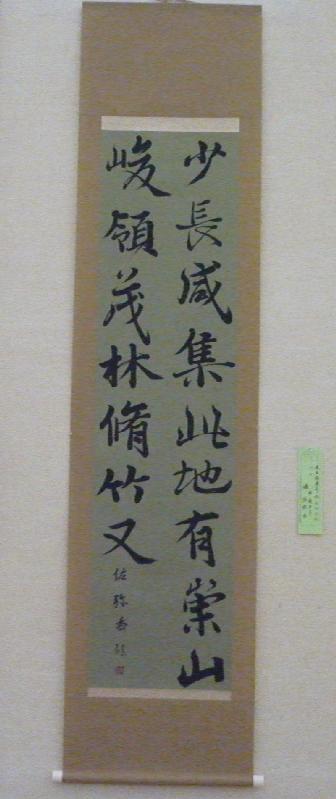 少長咸集此地有崇山
峻領茂林脩竹又
佑 香